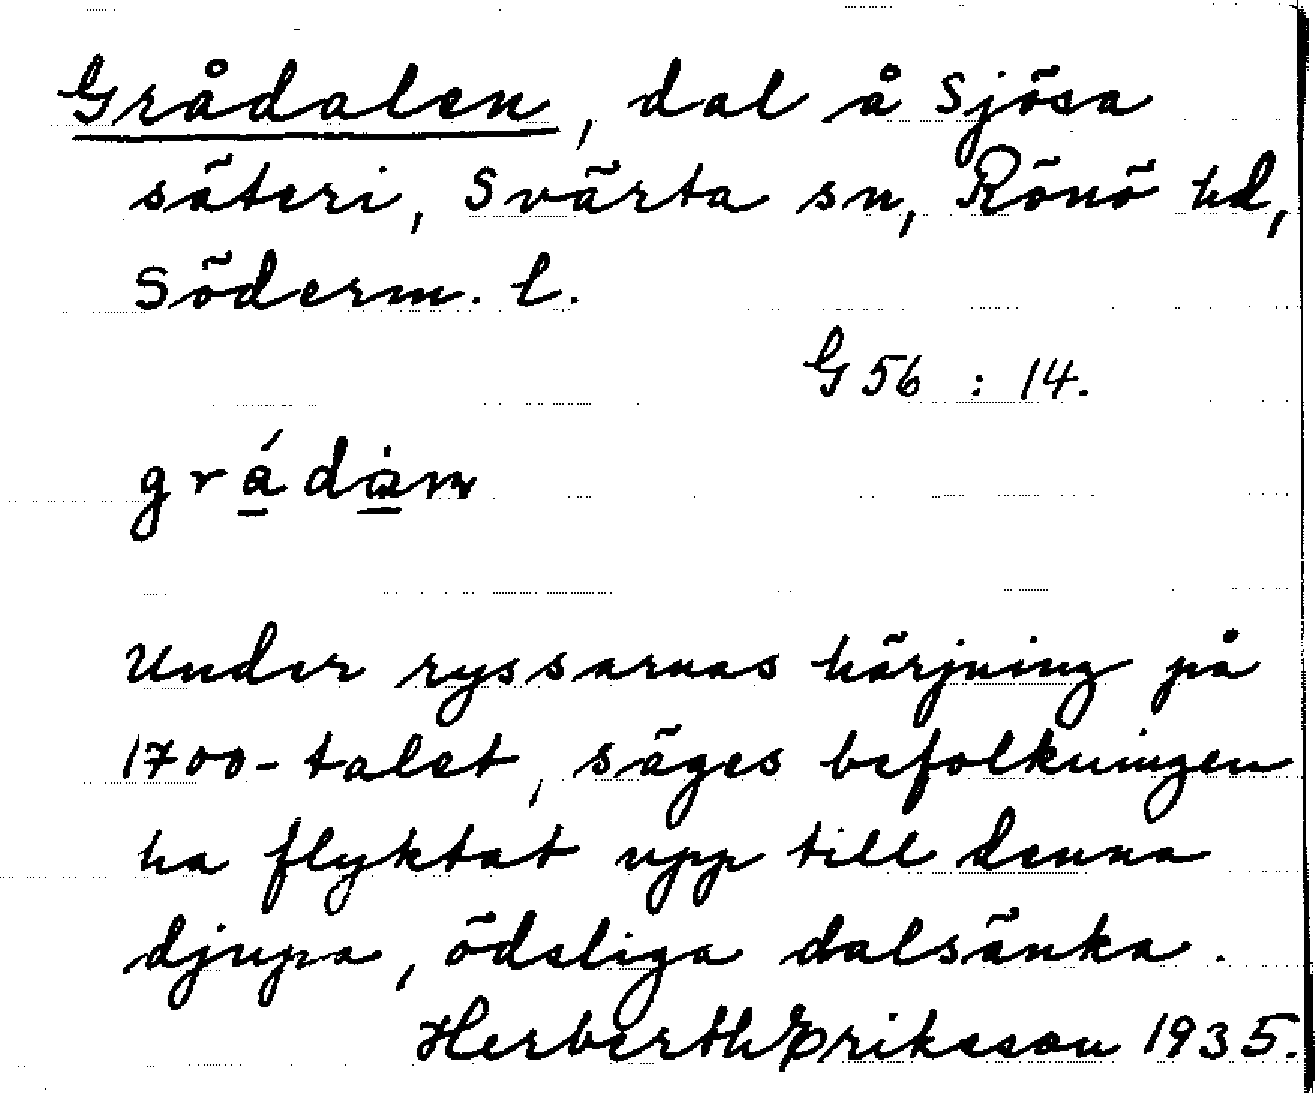 Grådalen, dal å Sjösa
säteri, Svärta sn, Rönö hd,
Söderm. l.
G 56 : 14.
Under ryssarnas härjning på
1700-talet, säges befolkningen
ha flyktat upp till denna
djupa, ödsliga dalsänka.
Herberth Eriksson 1935.